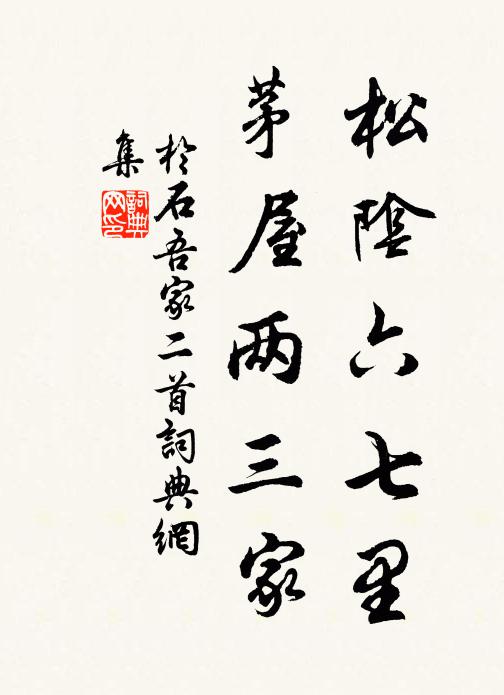 松陰六七里
茅屋两三家
於石吾家二首詞典網
集
詞典
网印